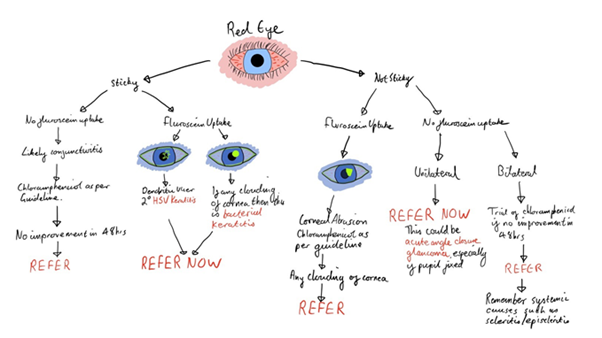 Red Eye
Sticky
Not Sticky
No fluroscein uptake
Likely conjunctivitis
Chloramphenicol as per
Guideline.
No improvement in 48hrs
REFER
Fluroscein Uptake
Dendritic Ulcer
2° HSV Keratitis
If any clouding
of cornea then this
is bacterial
keratitis
REFER NOW
Fluroscein Uptake
Corneal Abrasion
Chloramphenicol as
per guideline
Any clouding of cornea
REFER
No fluroscein uptake
Unilateral
REFER NOW
This could be
acute angle closure
glaucoma, especially
if pupil fixed
Bilateral
Trial of chloramphenicol
if no improvement in
48hrs
REFER
Remember systemic
causes such as
scleritis/episcleritis